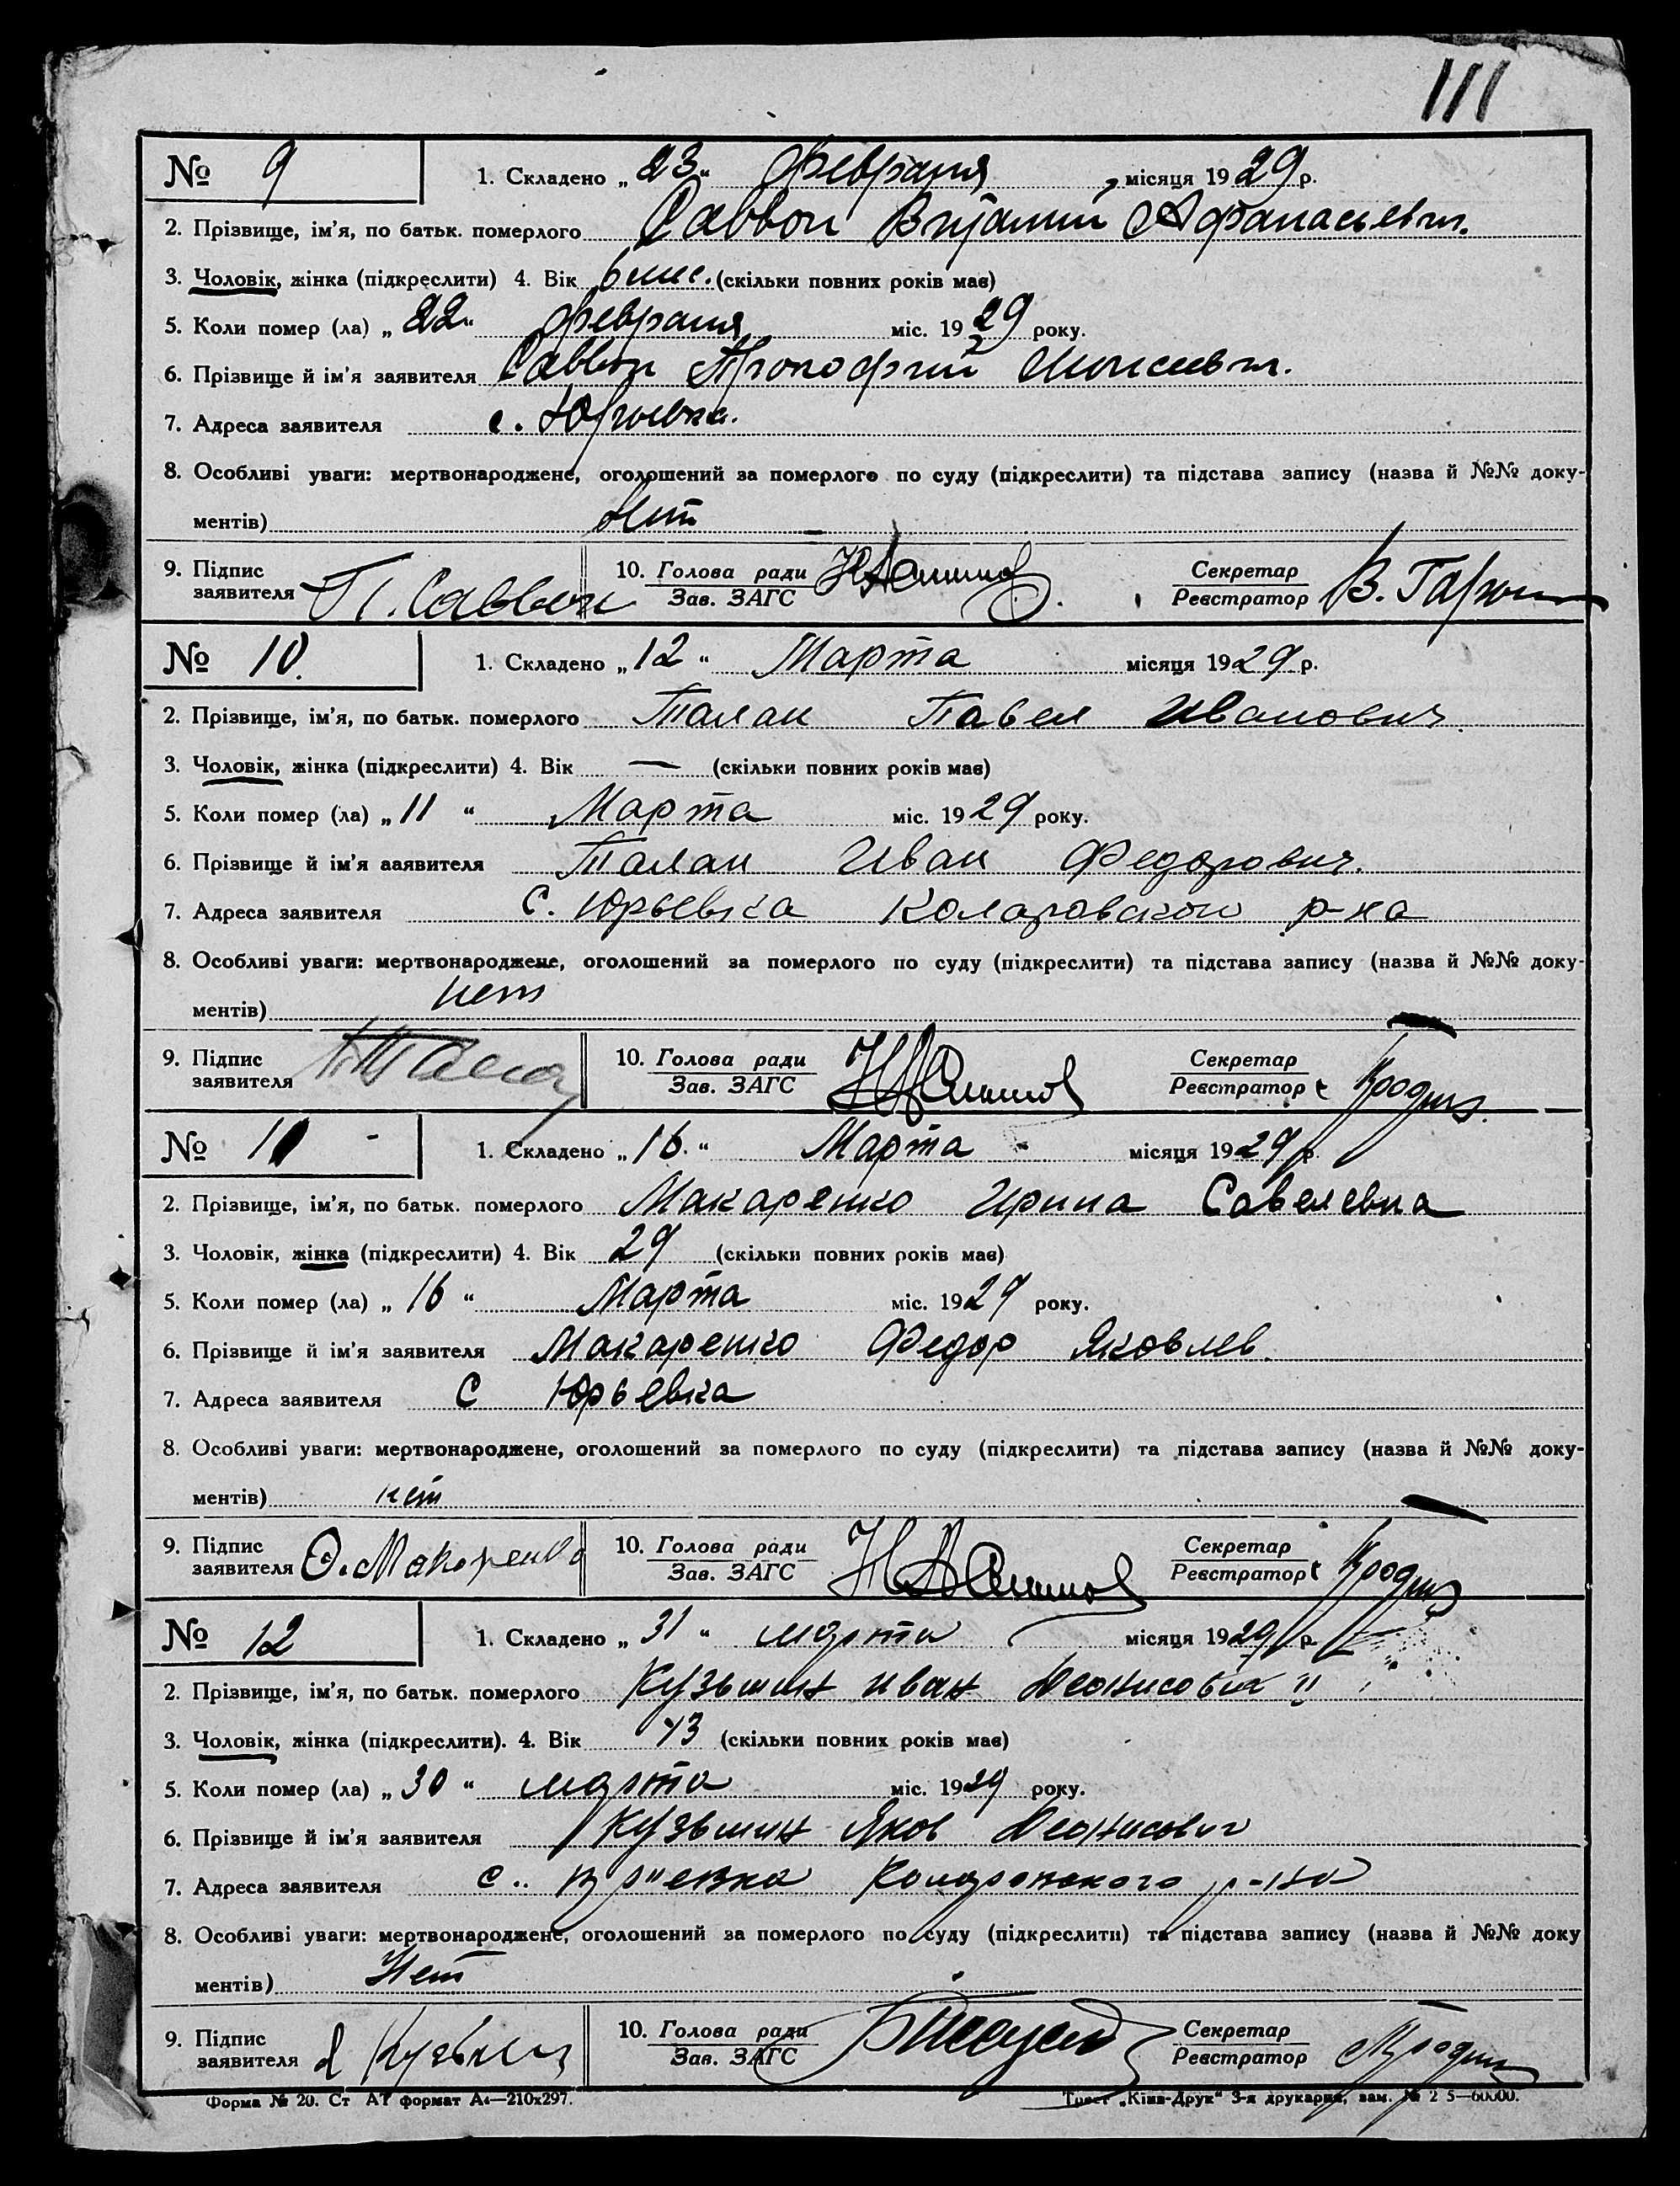 111
№ 9 1. Складено „23“ февраля місяця 1929 р.
2. Прізвище, ім'я, по батьк. померлого Саввон Афанасьевич.
3. Чоловік, жінка (підкреслити) 4. Вік 6 мис. (скільки повних років має)
5. Коли помер (ла) „22“ февраля міс. 1929 року.
6. Прізвище й ім'я заявителя Саввон Прокофий Моисеевич.
7. Адреса заявителя с. Юрьевка.
8. Особливі уваги: мертвонароджене, оголошений за померлого по суду (підкреслити) та підстава запису (назва й №№ доку-
ментів) Нет
9. Підпис заявителя П. Саввон 10. Голова ради Зав. ЗАГС Секретар Реєстратор В.
№ 10. 1. Складено „12“ Марта місяця 1929 р.
2. Прізвище, ім'я, по батьк. померлого Талан Павел Иванович
3. Чоловік, жінка (підкреслити) 4. Вік — (скільки повних років має)
5. Коли помер (ла) „11“ Марта міс. 1929 року.
6. Прізвище й ім'я ааявителя Талан Иван Федорович.
7. Адреса заявителя С. Юрьевка Коларовского р-на
8. Особливі уваги: мертвонароджене, оголошений за померлого по суду (підкреслити) та підстава запису (назва й №№ доку-
ментів) нет
9. Підпис заявителя 10. Голова ради Зав. ЗАГС Секретар Реєстратор
№ 11 1. Складено „16.“ Марта місяця 1929 р.
2. Прізвище, ім'я, по батьк. померлого Макаренко Ирина Савелевна
3. Чоловік, жінка (підкреслити) 4. Вік 29 (скільки повних років має)
5. Коли помер (ла) „16“ Марта міс. 1929 року.
6. Прізвище й ім'я заявителя Макаренко Федор Яковлев.
7. Адреса заявителя С Юрьевка
8. Особливі уваги: мертвонароджене, оголошений за померлого по суду (підкреслити) та підстава запису (назва й №№ доку-
ментів) нет
9. Підпис заявителя Ф. Макаренко 10. Голова ради Зав. ЗАГС Секретар Реєстратор
№ 12 1. Складено „31“ марта місяця 1929 р.
2. Прізвище, ім'я, по батьк. померлого Кузьмин иван Деонисович
3. Чоловік, жінка (підкреслити). 4. Вік 43 (скільки повних років має)
5. Коли помер (ла) „30“ марта міс. 1929 року.
6. Прізвище й ім'я заявителя Кузьмин Яков Деонисович
7. Адреса заявителя с. Юрьевка Коларовского р-на
8. Особливі уваги: мертвонароджене, оголошений за померлого по суду (підкреслити) та підстава запису (назва й №№ доку
ментів) Нет
9. Підпис заявителя Я Кузьмин 10. Голова ради Зав. ЗАГС Секретар Реєстратор
Форма № 20. Ст АТ формат А4—210х297. Трест „Київ-Друк“ 3-я друкарня, зам. № 2 5—60000.